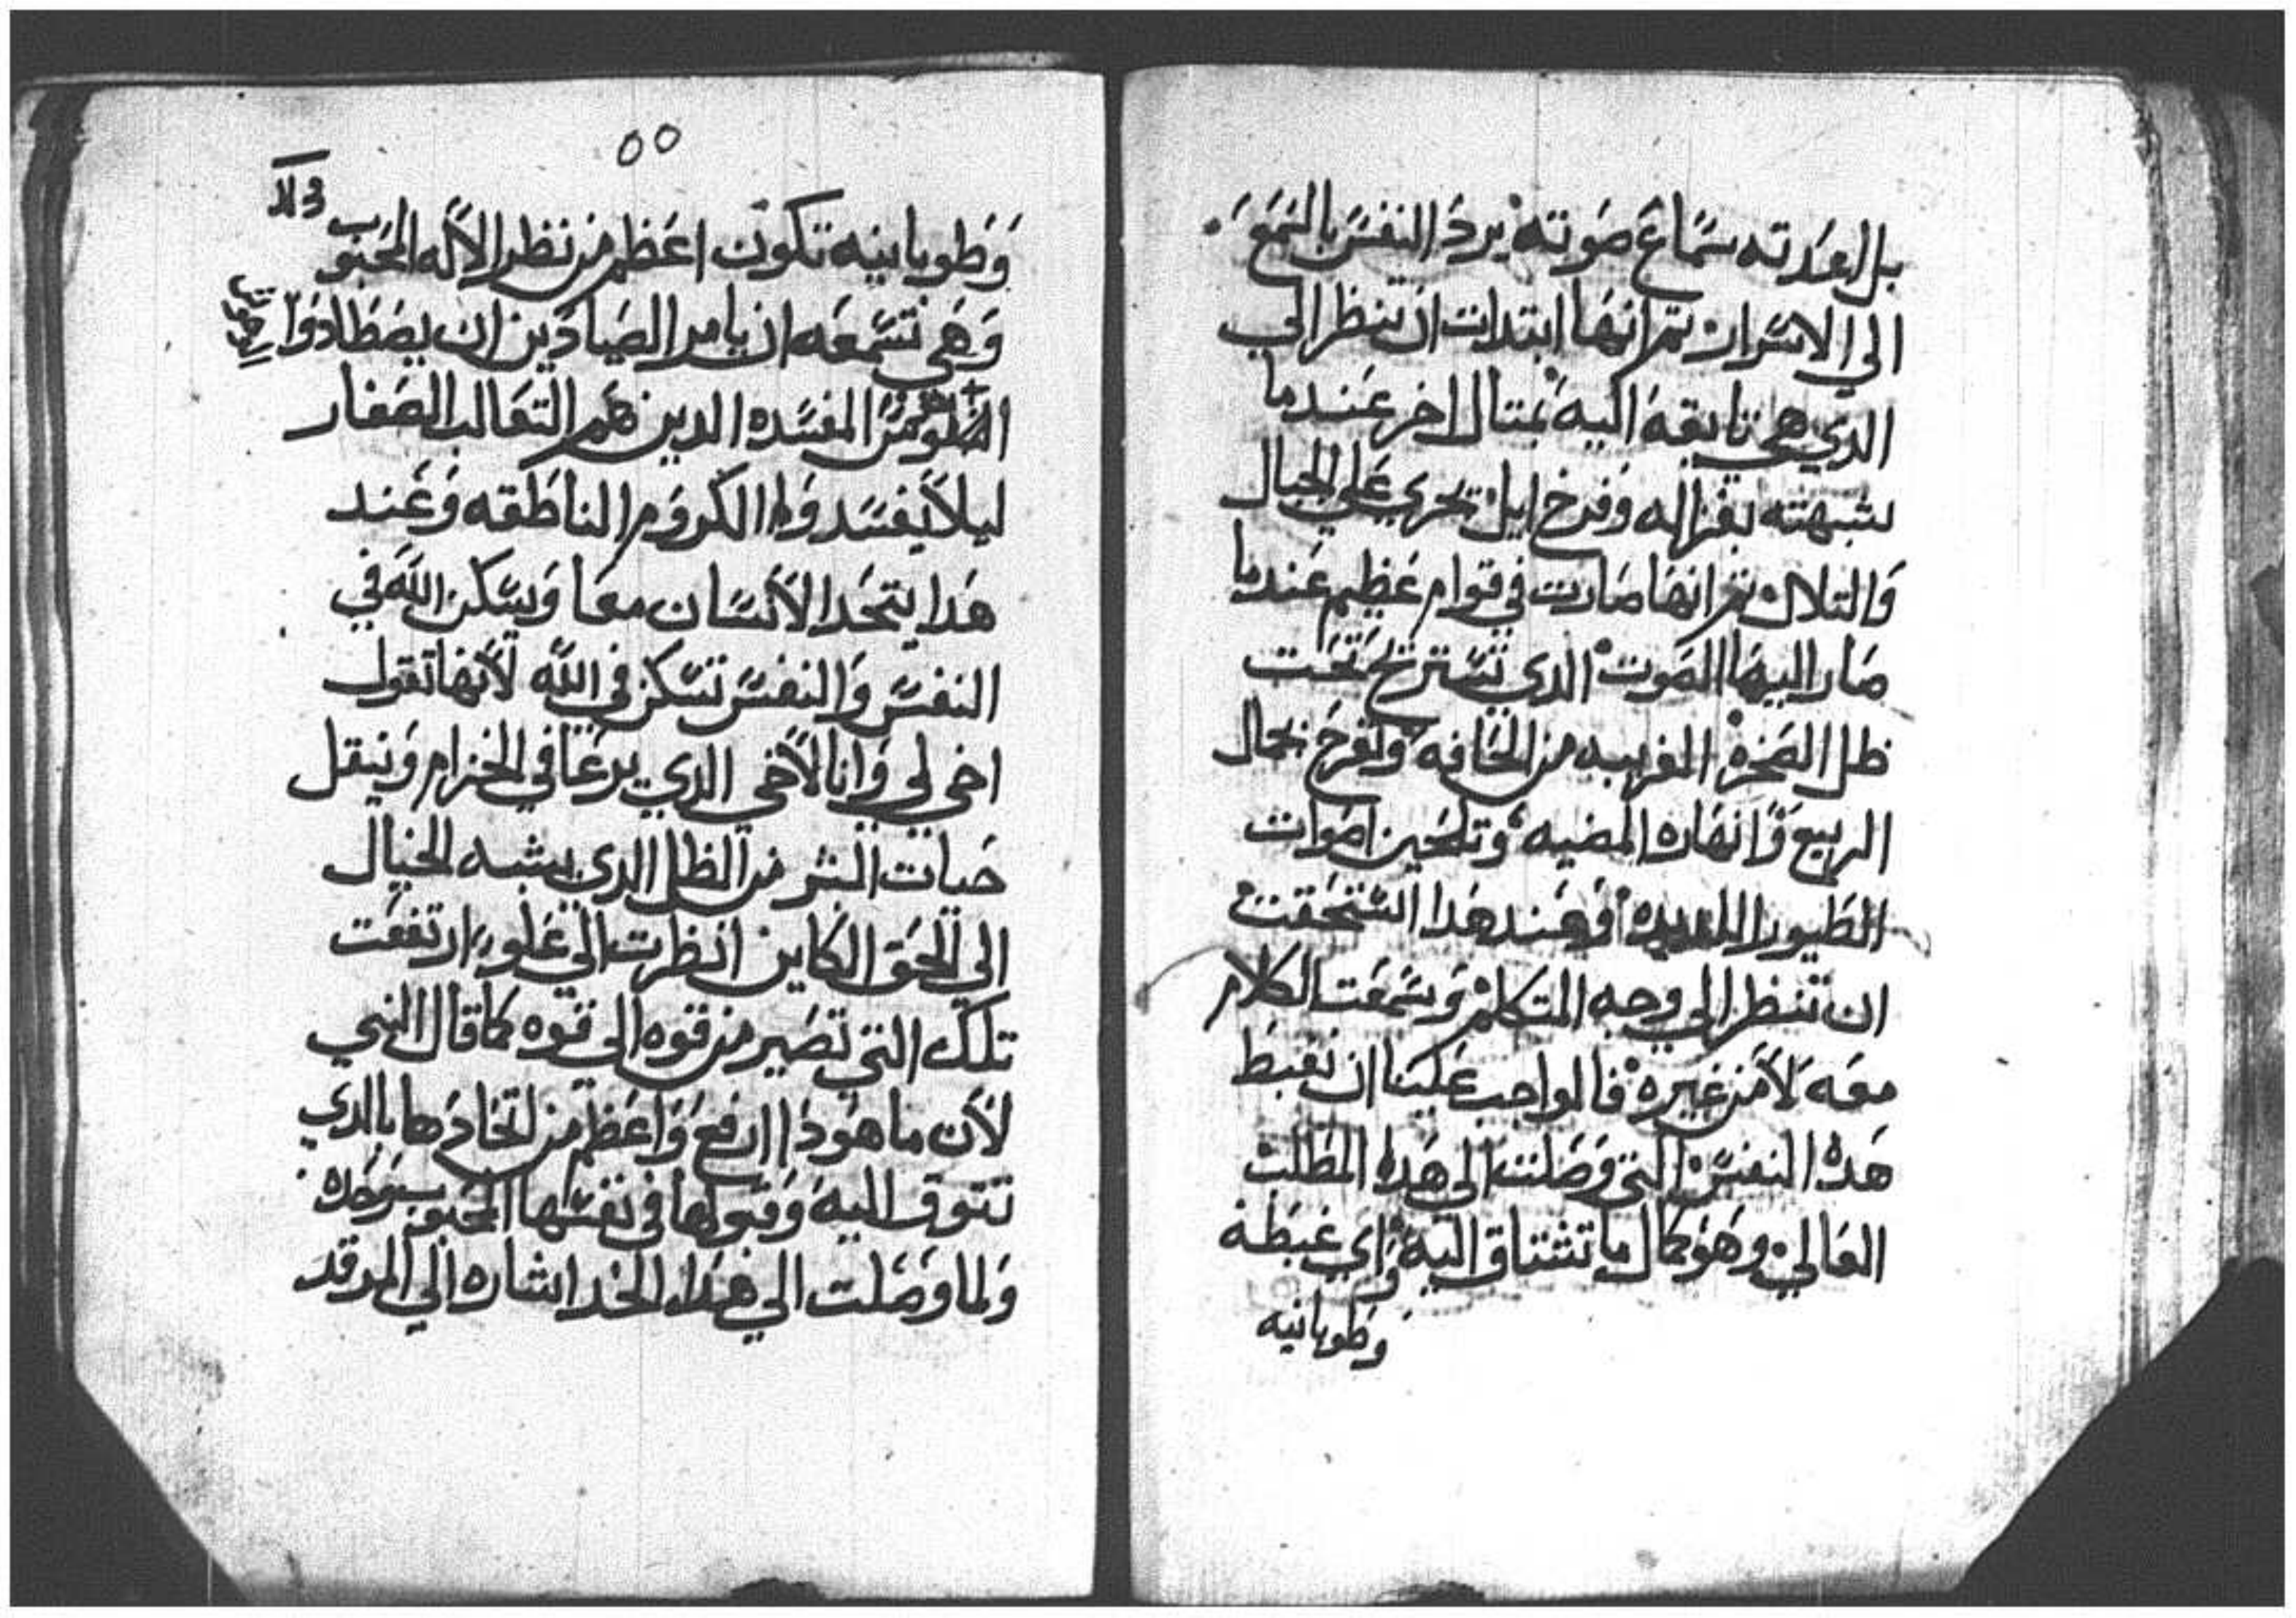 بل العدته سماع صوته يرد النفس بالسمع
الي الاسرار تم انها ابتدات ان تنظر الي
الدي هي تايقه اليه بمتال اخر عندما
شبهته بغزاله وفرخ ايل تجري علي الجبال
والتلال تم انها صارت في قوام عظيم عندما
صار اليها الصوت الدي تستريح تحت
ظل الصخره القريبه من الحافه وتفرح بجمال
الربيع وانهاره المضيه وتلحين اصوات
الطيور اللديده وعند هدا استحقت
ان تنظر الي وجه المتكلم وسمعت الكلام
معه لا من غيره فالواجب علينا ان نغبط
هده النفس التي وصلت الي هدا المطلب
العالي وهو كمال ما تشتاق اليه واي غبطه
وطوبانيه
٥٥
وطوبانيه تكون اعظم من نظر الاله المحبوب
وهي تسمعه ان يامر الصيادين ان يصطادوا
المفسده الدين هم التعالب الصغار
ليلا يفسدوا الكروم الناطقه وعند
هدا يتحد الانسان معا ويسكن الله في
النفس والنفس تسكن في الله لانها تقول
اخي لي وانا لاخي الدي يرعا في الخزام وينقل
حيات البشر من الظل الدي يشبه الخيال
الي الحق الكاين انظرت الي علو ارتفعت
تلك التي تصير من قوه الي قوه كما قال النبي
لان ما هودا ارفع واعظم من اتحادها بالدي
تتوق اليه وقبولها في نفسها المحبوب وحده
ولما وصلت الي هدا الحد اشاره الي المرقد